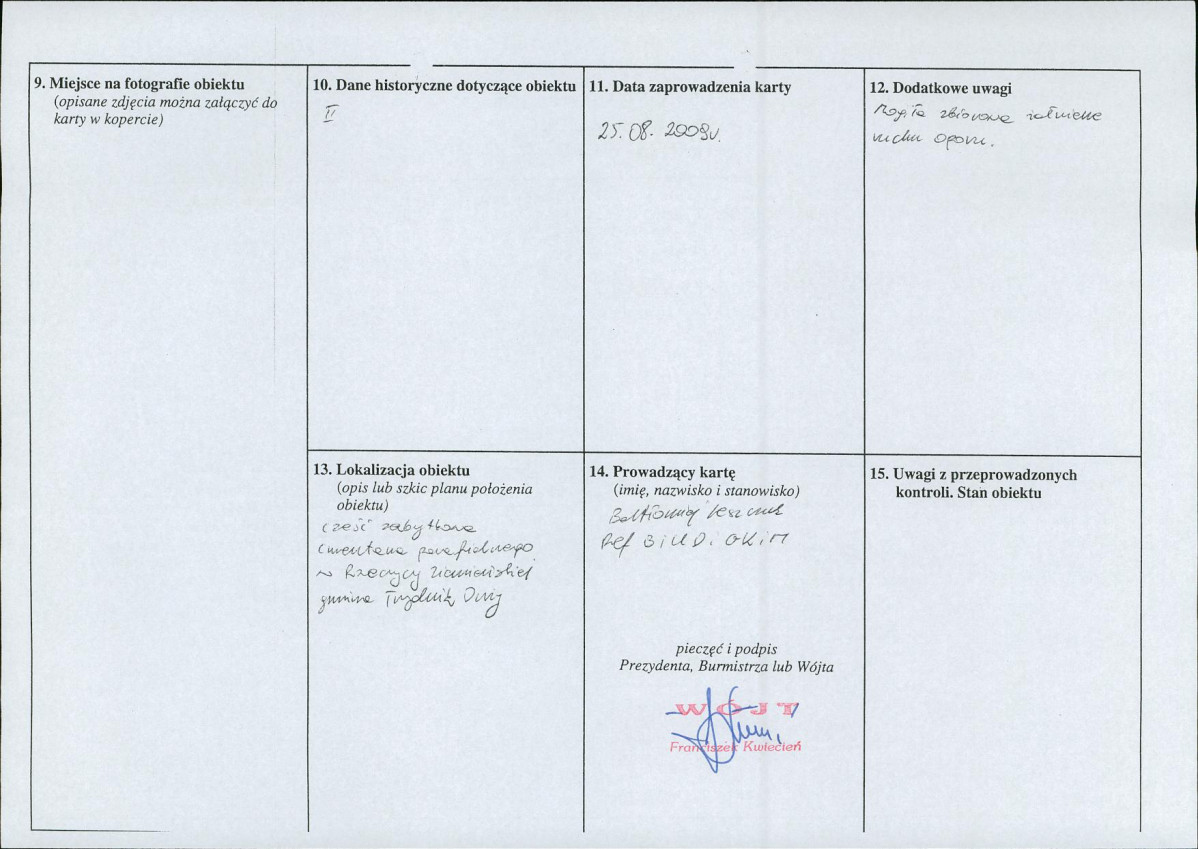 9. Miejsce na fotografie obiektu
(opisane zdjęcia można załączyć do
karty w kopercie)
10. Dane historyczne dotyczące obiektu
II
11. Data zaprowadzenia karty
25.08. 2009r.
12. Dodatkowe uwagi
Mogiła zbiorowa żołnierze
ruchu oporu.
13. Lokalizacja obiektu
(opis lub szkic planu położenia
obiektu)
cześć zabytkowa
cmentarza parafialnego
w Rzeczycy Ziemiańskiej
gmina Trzydnik Duży
14. Prowadzący kartę
(imię, nazwisko i stanowisko)
Bartłomiej
Ref
pieczęć i podpis
Prezydenta, Burmistrza lub Wójta
WÓJT
Franciszek Kwiecień
15. Uwagi z przeprowadzonych
kontroli. Stan obiektu